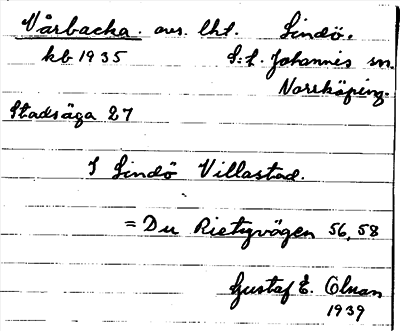 Vårbacka. avs. lht. Lindö.
kb 1935 S:t. Johannis sn.
Norrköping.
Stadsäga 27
I Lindö Villastad.
= Du Rietzvägen 56, 58
Gustaf E. Olsan
1939